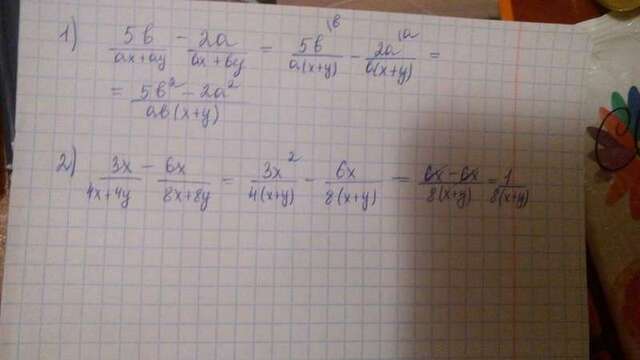 1) 5в/ax+ay - 2a/вx+вy = 5в\в/a(x+y) - 2a\a/в(x+y) =
= 5в²-2a²/aв(x+y)
2) 3x/4x+4y - 6x/8x+8y = 3x\2/4(x+y) - 6x/8(x+y) = 6x-6x/8(x+y) = 1/8(x+y)